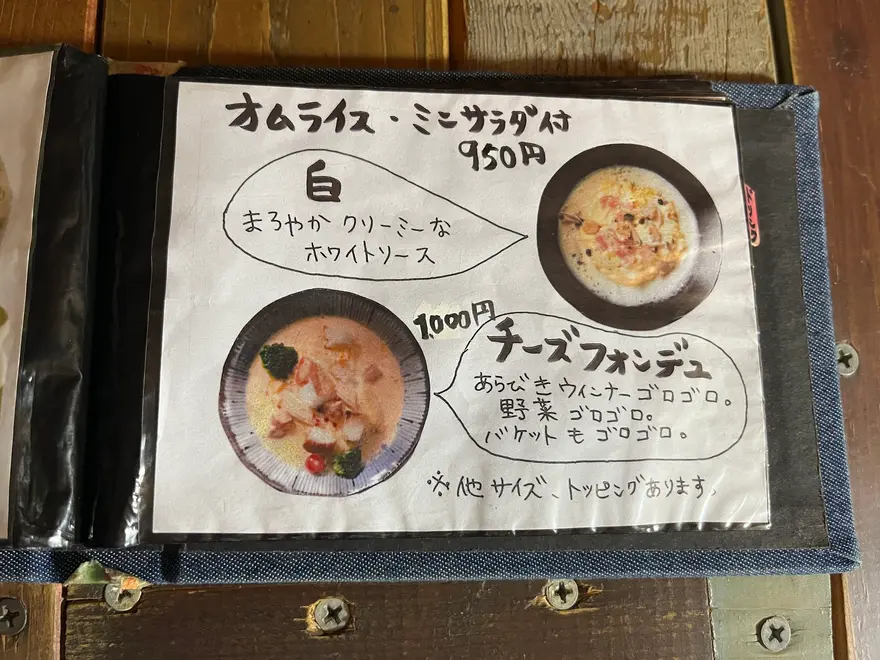 オムライス・ミニサラダ付
950円
白
まろやか クリーミーな
ホワイトソース
1,000円
チーズフォンデュ
あらびきウィンナーゴロゴロ。
野菜ゴロゴロ。
バケットもゴロゴロ。
※他サイズ、トッピングあります。